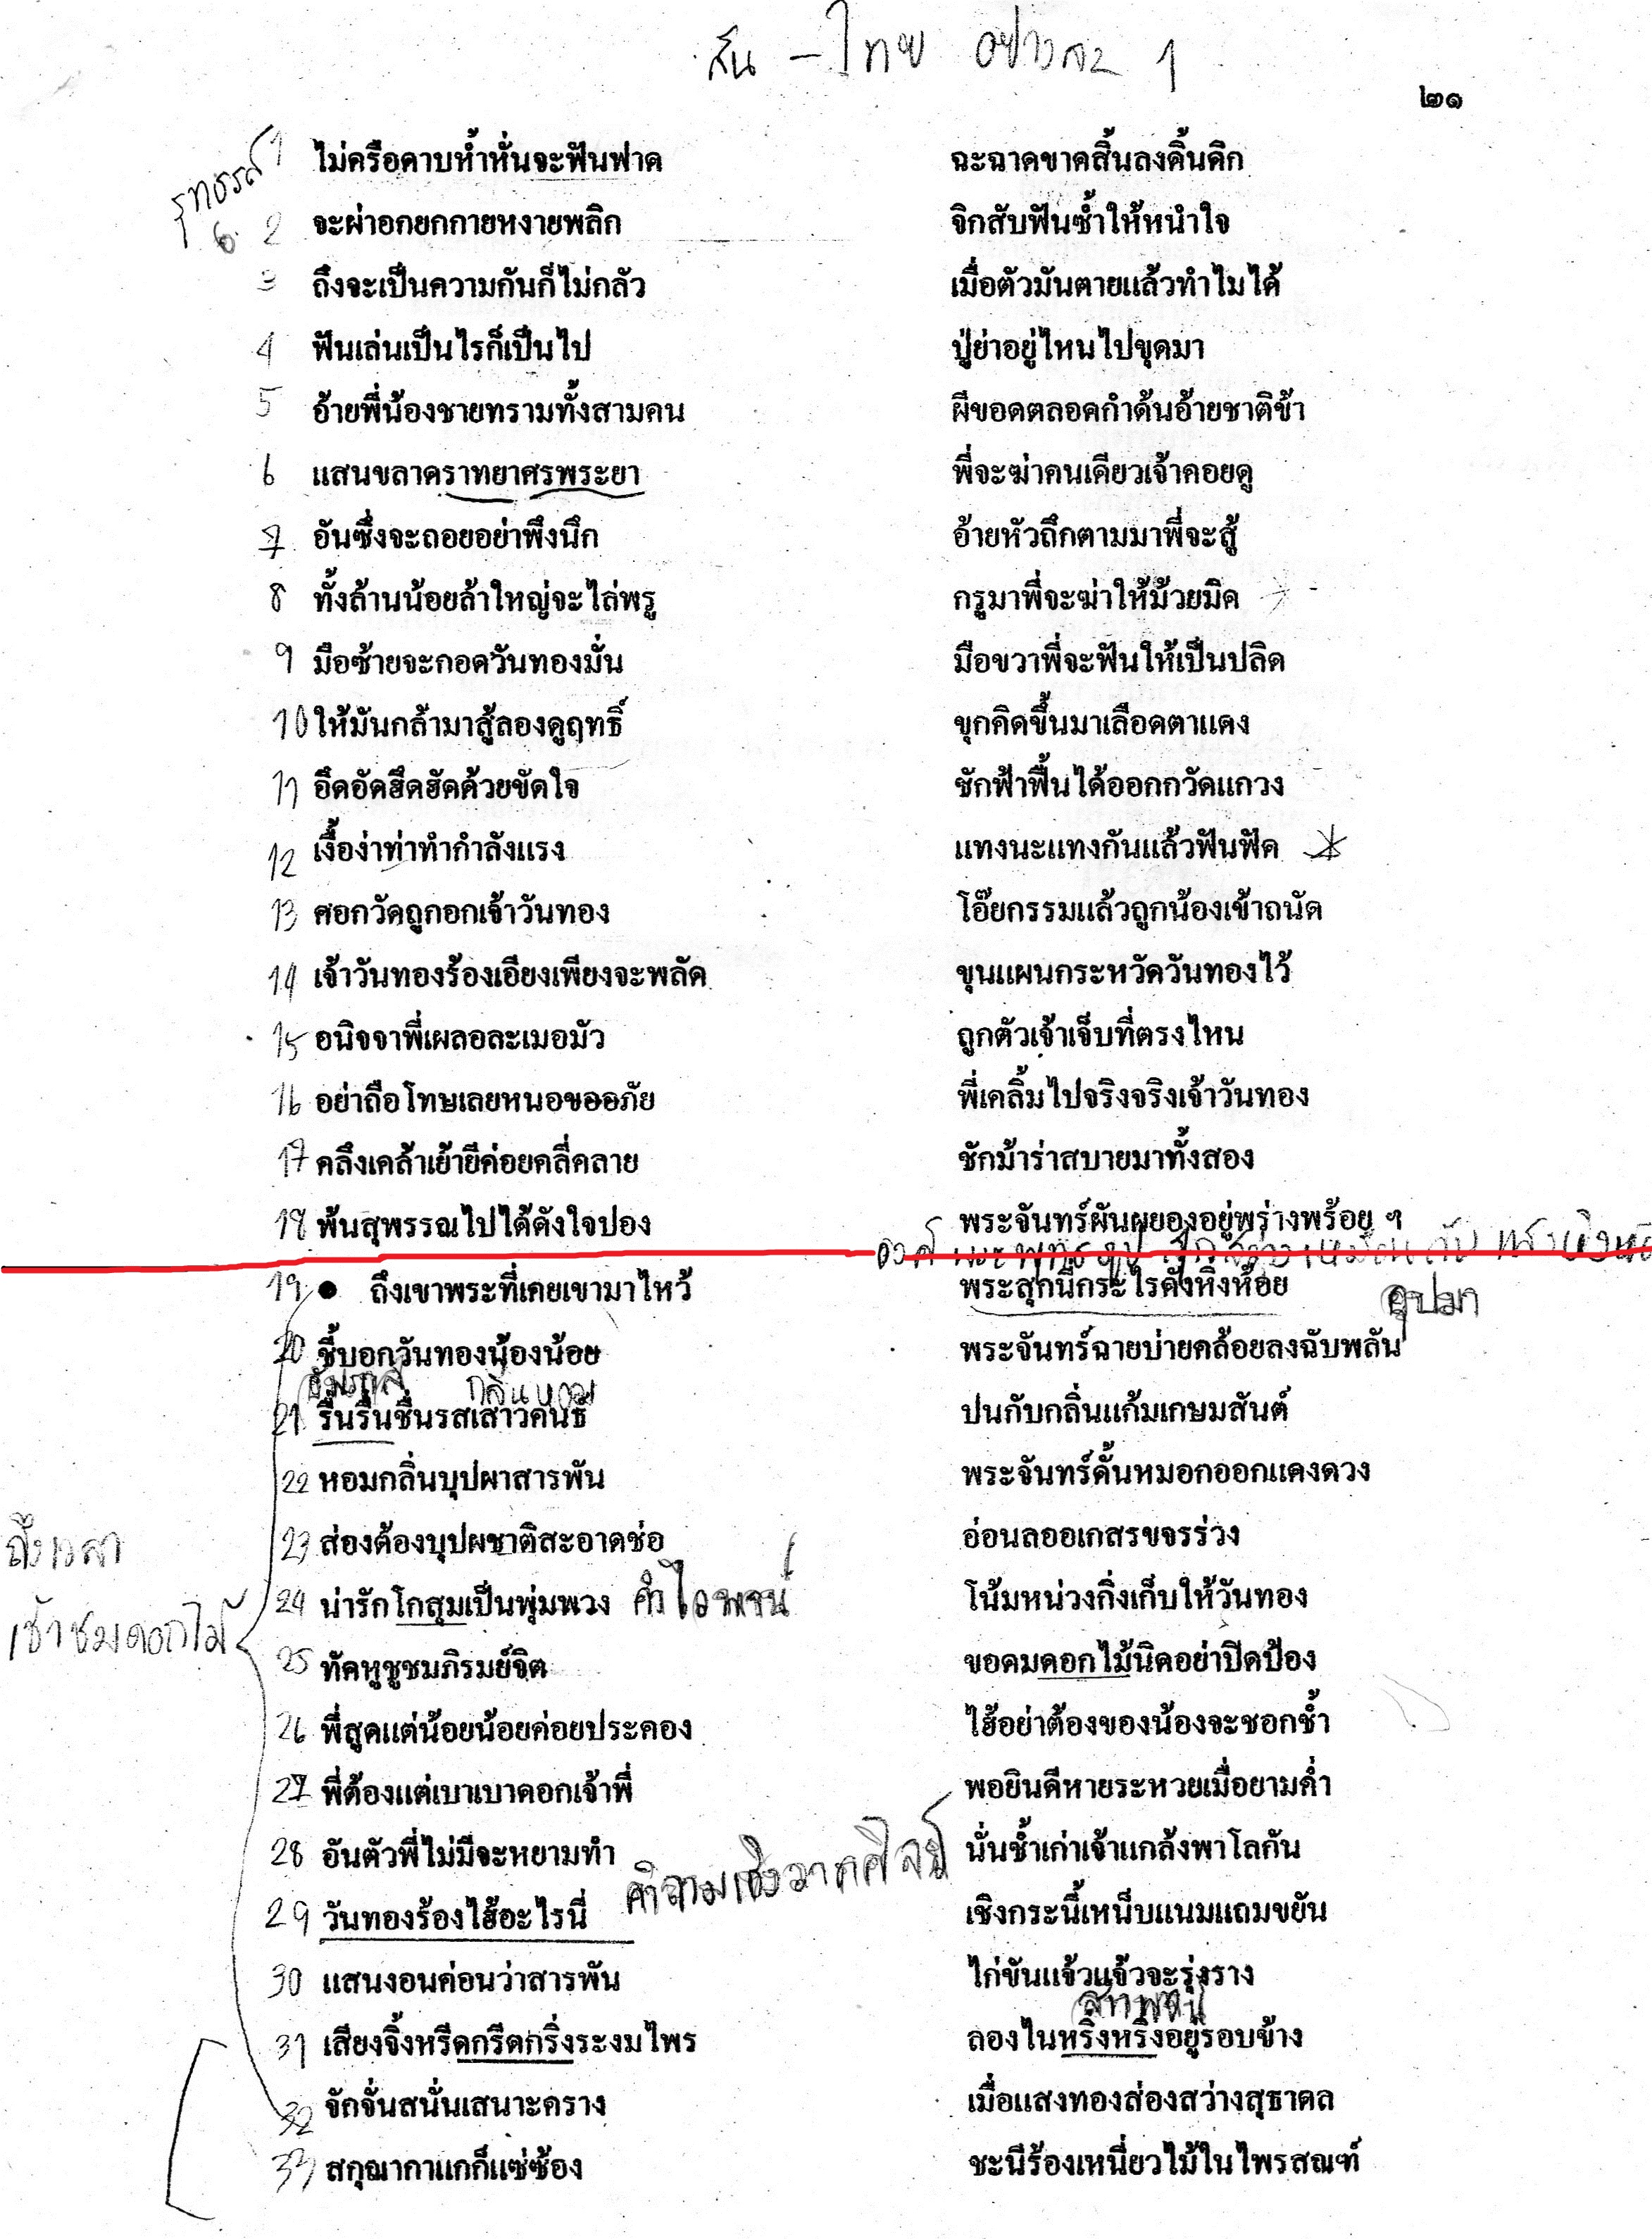 สัน - ไทย อย่างละ 1
๒๑
รุทธรส
6.
1 ไม่ครือคาบห้ำหั่นจะฟันฟาด ฉะฉาดขาดสิ้นลงดิ้นดิก
2 จะผ่าอกยกกายหงายพลิก จิกสับฟันซ้ำให้หนำใจ
3 ถึงจะเป็นความกันก็ไม่กลัว เมื่อตัวมันตายแล้วทำไมได้
4 ฟันเล่นเป็นไรก็เป็นไป ปู่ย่าอยู่ไหนไปขุดมา
5 อ้ายพี่น้องชายทรามทั้งสามคน ผีขอดตลอดกำด้นอ้ายชาติข้า
6 แสนขลาดราทยาศรพระยา พี่จะฆ่าคนเดียวเจ้าคอยดู
7 อันซึ่งจะถอยอย่าพึงนึก อ้ายหัวถึกตามมาพี่จะสู้
8 ทั้งล้านน้อยล้าใหญ่จะไล่พรู กรูมาพี่จะฆ่าให้ม้วยมิด
9 มือซ้ายจะกอดวันทองมั่น มือขวาพี่จะฟันให้เป็นปลิด
10 ให้มันกล้ามาสู้ลองดูฤทธิ์ ขุกคิดขึ้นมาเลือดตาแดง
11 อึดอัดฮึดฮัดด้วยขัดใจ ชักฟ้าฟื้นได้ออกกวัดแกวง
12 เงื้อง่าท่าทำกำลังแรง แทงนะแทงกันแล้วฟันฟัด
13 ศอกวัดถูกอกเจ้าวันทอง โอ๊ยกรรมแล้วถูกน้องเข้าถนัด
14 เจ้าวันทองร้องเอียงเพียงจะพลัด ขุนแผนกระหวัดวันทองไว้
15 อนิจจาพี่เผลอละเมอมัว ถูกตัวเจ้าเจ็บที่ตรงไหน
16 อย่าถือโทษเลยหนอขออภัย พี่เคลิ้มไปจริงจริงเจ้าวันทอง
17 คลึงเคล้าเย้ายีค่อยคลี่คลาย ชักม้าร่าสบายมาทั้งสอง
18 พ้นสุพรรณไปได้ดังใจปอง พระจันทร์ผันผยองอยู่พร่างพร้อย ฯ
19 ● ถึงเขาพระที่เคยเขามาไหว้ พระสุกนี่กระไรดังหิ่งห้อย
อุปมา
20 ชี้บอกวันทองน้องน้อย พระจันทร์ฉายบ่ายคล้อยลงฉับพลัน
สัมผัส กลิ่นหอม
21 รื่นรื่นชื่นรสเสาวคนธ์ ปนกับกลิ่นแก้มเกษมสันต์
22 หอมกลิ่นบุปผาสารพัน พระจันทร์ดั้นหมอกออกแดงดวง
23 ส่องต้องบุปผชาติสะอาดช่อ อ่อนลออเกสรขจรร่วง
24 น่ารักโกสุมเป็นพุ่มพวง คำไวพจน์ โน้มหน่วงกิ่งเก็บให้วันทอง
ถึงเวลา
เช้าชมดอกไม้
25 ทัดหูชูชมภิรมย์จิต ขอดมดอกไม้นิดอย่าปิดป้อง
26 พี่สูดแต่น้อยน้อยค่อยประคอง ไฮ้อย่าต้องของน้องจะชอกช้ำ
27 พี่ต้องแต่เบาเบาดอกเจ้าพี่ พอยินดีหายระหวยเมื่อยามค่ำ
28 อันตัวพี่ไม่มีจะหยามทำ นั่นช้ำเก่าเจ้าแกล้งพาโลกัน
คำถามเชิงวาทศิลป์
29 วันทองร้องไฮ้อะไรนี่ เชิงกระนี้เหน็บแนมแถมขยัน
30 แสนงอนค่อนว่าสารพัน ไก่ขันแจ้วแจ้วจะรุ่งราง
สัทพจน์
31 เสียงจิ้งหรีดกรีดกริ่งระงมไพร ลองไนหริ่งหริ่งอยู่รอบข้าง
32 จักจั่นสนั่นเสนาะคราง เมื่อแสงทองส่องสว่างสุธาดล
33 สกุณากาแกก็แซ่ซ้อง ชะนีร้องเหนี่ยวไม้ในไพรสณฑ์